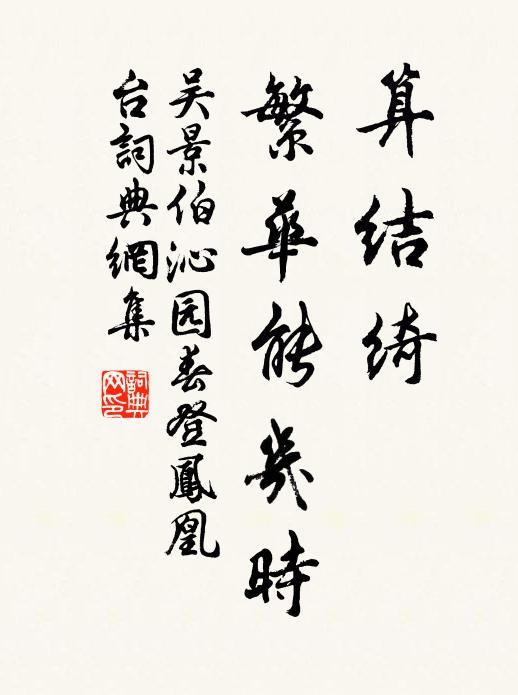 算结绮
繁華能幾時
吴景伯沁园春登鳳凰
台詞典網集
詞典
网印